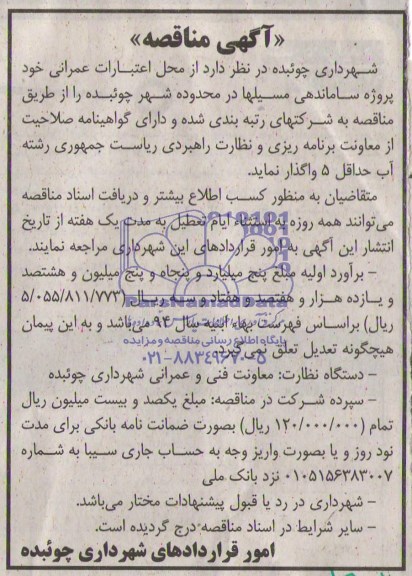 «آگهی مناقصه»
شهرداری چوئبده در نظر دارد از محل اعتبارات عمرانی خود
پروژه ساماندهی مسیلها در محدوده شهر چوئبده را از طریق
مناقصه به شرکتهای رتبه بندی شده و دارای گواهینامه صلاحیت
از معاونت برنامه ریزی و نظارت راهبردی ریاست جمهوری رشته
آب حداقل ۵ واگذار نماید.
متقاضیان به منظور کسب اطلاع بیشتر و دریافت اسناد مناقصه
می‌توانند همه روزه به استثناء ایام تعطیل به مدت یک هفته از تاریخ
انتشار این آگهی به امور قراردادهای این شهرداری مراجعه نمایند.
– برآورد اولیه مبلغ پنج میلیارد و پنجاه و پنج میلیون و هشتصد
و یازده هزار و هفتصد و هفتاد و سه ریال (۵/۰۵۵/۸۱۱/۷۷۳
ریال) براساس فهرست بهاء ابنیه سال ۹۴ می‌باشد و به این پیمان
هیچگونه تعدیل تعلق نمی‌گیرد.
– دستگاه نظارت: معاونت فنی و عمرانی شهرداری چوئبده
– سپرده شرکت در مناقصه: مبلغ یکصد و بیست میلیون ریال
تمام (۱۲۰/۰۰۰/۰۰۰ ریال) بصورت ضمانت نامه بانکی برای مدت
نود روز و یا بصورت واریز وجه به حساب جاری سیبا به شماره
۰۱۰۵۱۵۶۳۸۳۰۰۷ نزد بانک ملی
– شهرداری در رد یا قبول پیشنهادات مختار می‌باشد.
– سایر شرایط در اسناد مناقصه درج گردیده است.
امور قراردادهای شهرداری چوئبده
ParsNamadData
پایگاه اطلاع رسانی مناقصه و مزایده
۰۲۱-۸۸۳۴۹۶۷۰-۵